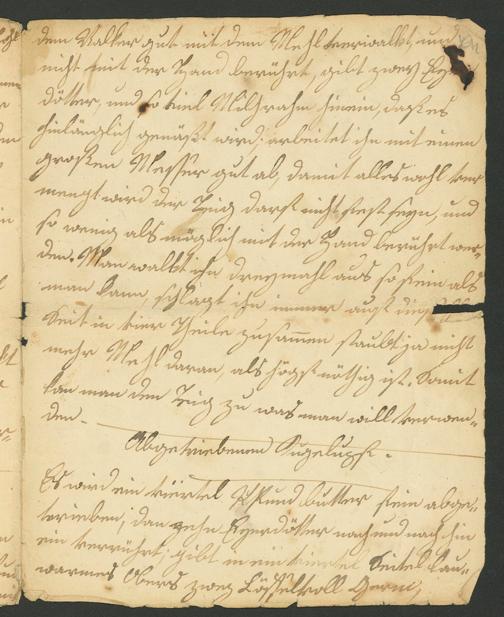 dem Walker gut mit dem Mehl verwalkt, und
nicht mit der Hand berührt, gibt zwey Eyer
dötter, und so viel Milchrahm hinein, daß es
hinlänglich genäßt wird: arbeitet ihn mit einen
großen Messer gut ab, damit alles wohl ver
mengt wird der Teig darf nicht fest seyn, und
so wenig als möglich mit der Hand berührt wer=
den. Man walkt ihn dreymahl aus so fein als
man kann, schlägt ihn immer auf
Seit in vier Theile zusammen staubt ja nicht
mehr Mehl daran, als högst nöthig ist. Somit
kan man den Teig zu was man will verwen=
den.
Abgetriebenen Kugelupf.
Es wird ein viertel Pfund butter fein abge=
trieben, dan zehn Eyerdötter nach und nach hin
ein verrührt, gibt in ein viertel Seitel lau=
warmes Obers zwey Löffelvoll Germ,